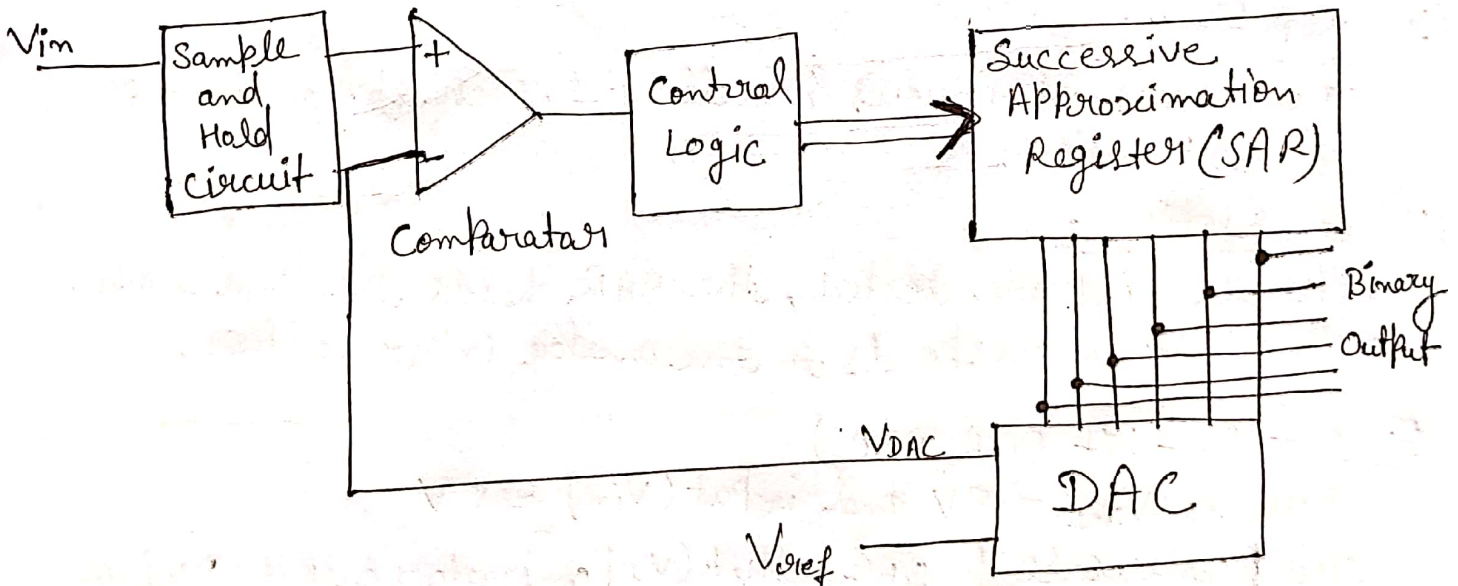 Vin
Sample
and
Hold
circuit
+
-
Comparatar
Contral
Logic
Successive
Approximation
Register (SAR)
Binary
Output
VDAC
DAC
Vref